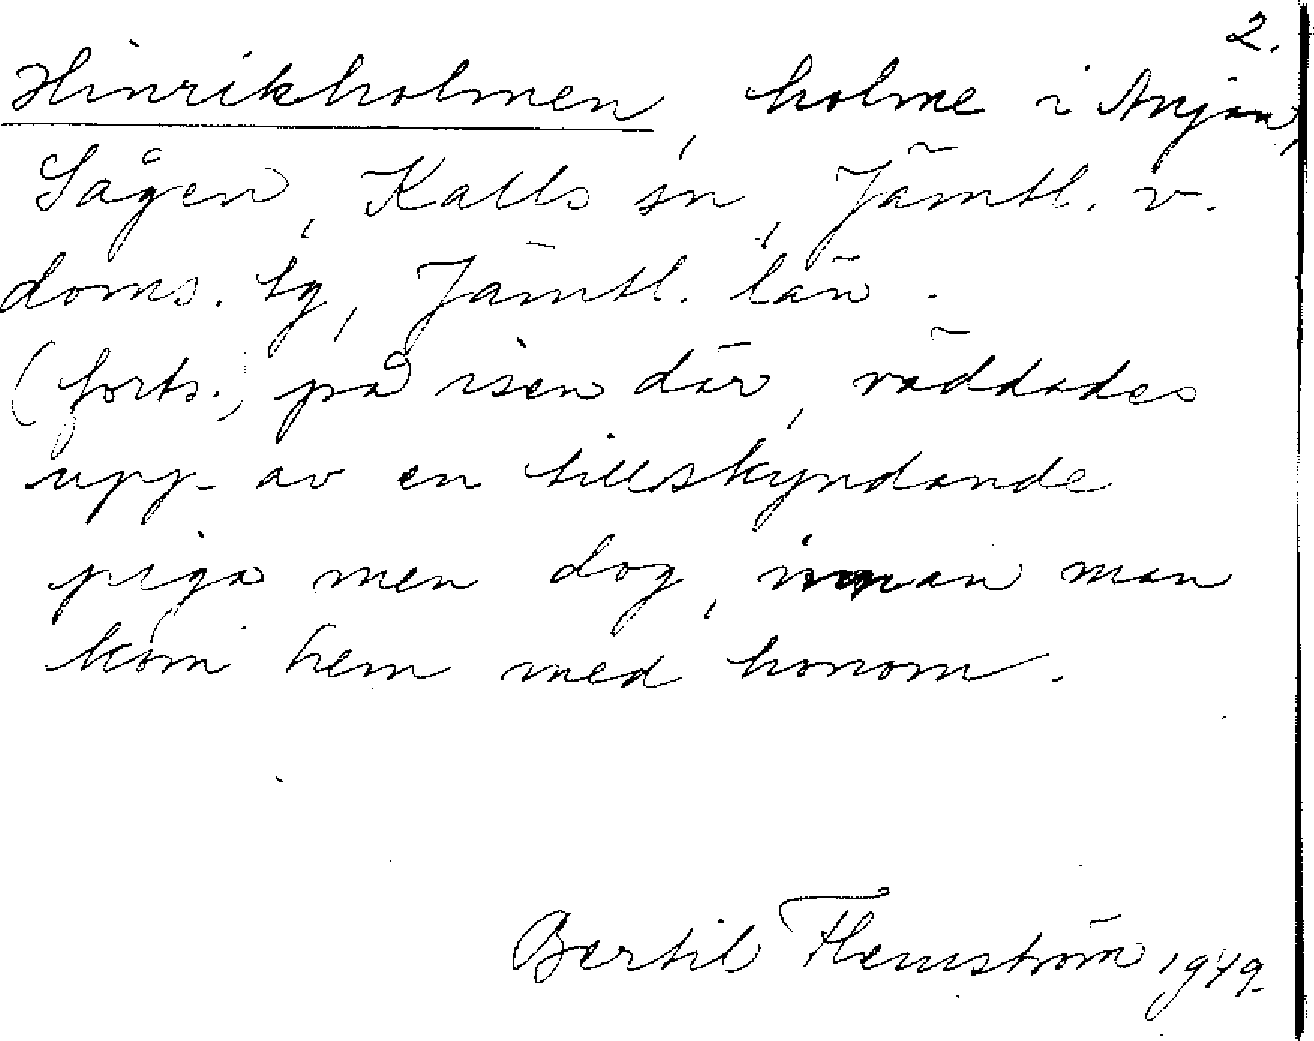 2.
Hinrikholmen, holme i Anjan,
Sågen, Kalls sn, Jämtl. v.
doms. tg, Jämtl. län.
(forts.) på isen där, räddades
upp av en tillskyndande
piga men dog, innan man
kom hem med honom.
Bertil Flemström 1949.